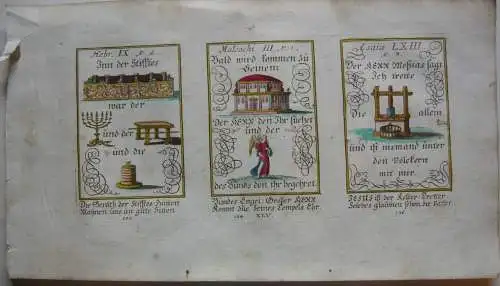 Hebr. IX v. 2.
Inn der Stiffts
war der
und der
und die
Die Geräth der Stiffts Hütten
Mahnen uns an gute Sitten
Malachi III v. 1.
Bald wird kommen zu
Seinem
Der HERR den Ihr suchet
und der
des Bunds den ihr begehret
Bundes Engel, Grosser HERR
Kommt die seines Tempels Ehr
XXV.
Esaiæ LXIII
Der HERR Messias sagt
Ich trette
Die allein
und ist niemand unter
den Völckern
mit mir
JESUS ist der Kelter Tretter